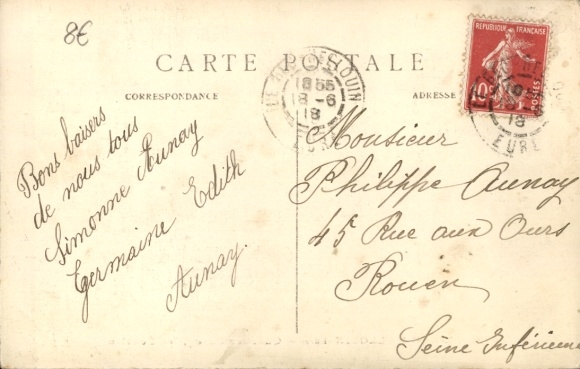 8€
CARTE POSTALE
CORRESPONDANCE
ADRESSE
REPUBLIQUE FRANÇAISE
10
POSTES
1855
18-6
18
EURE
18
EURE
Bons baisers
de nous tous
Simonne Aunay
Germaine Edith
Aunay.
Monsieur
Philippe Aunay
45 Rue aux Ours
Rouen
Seine Inférieure